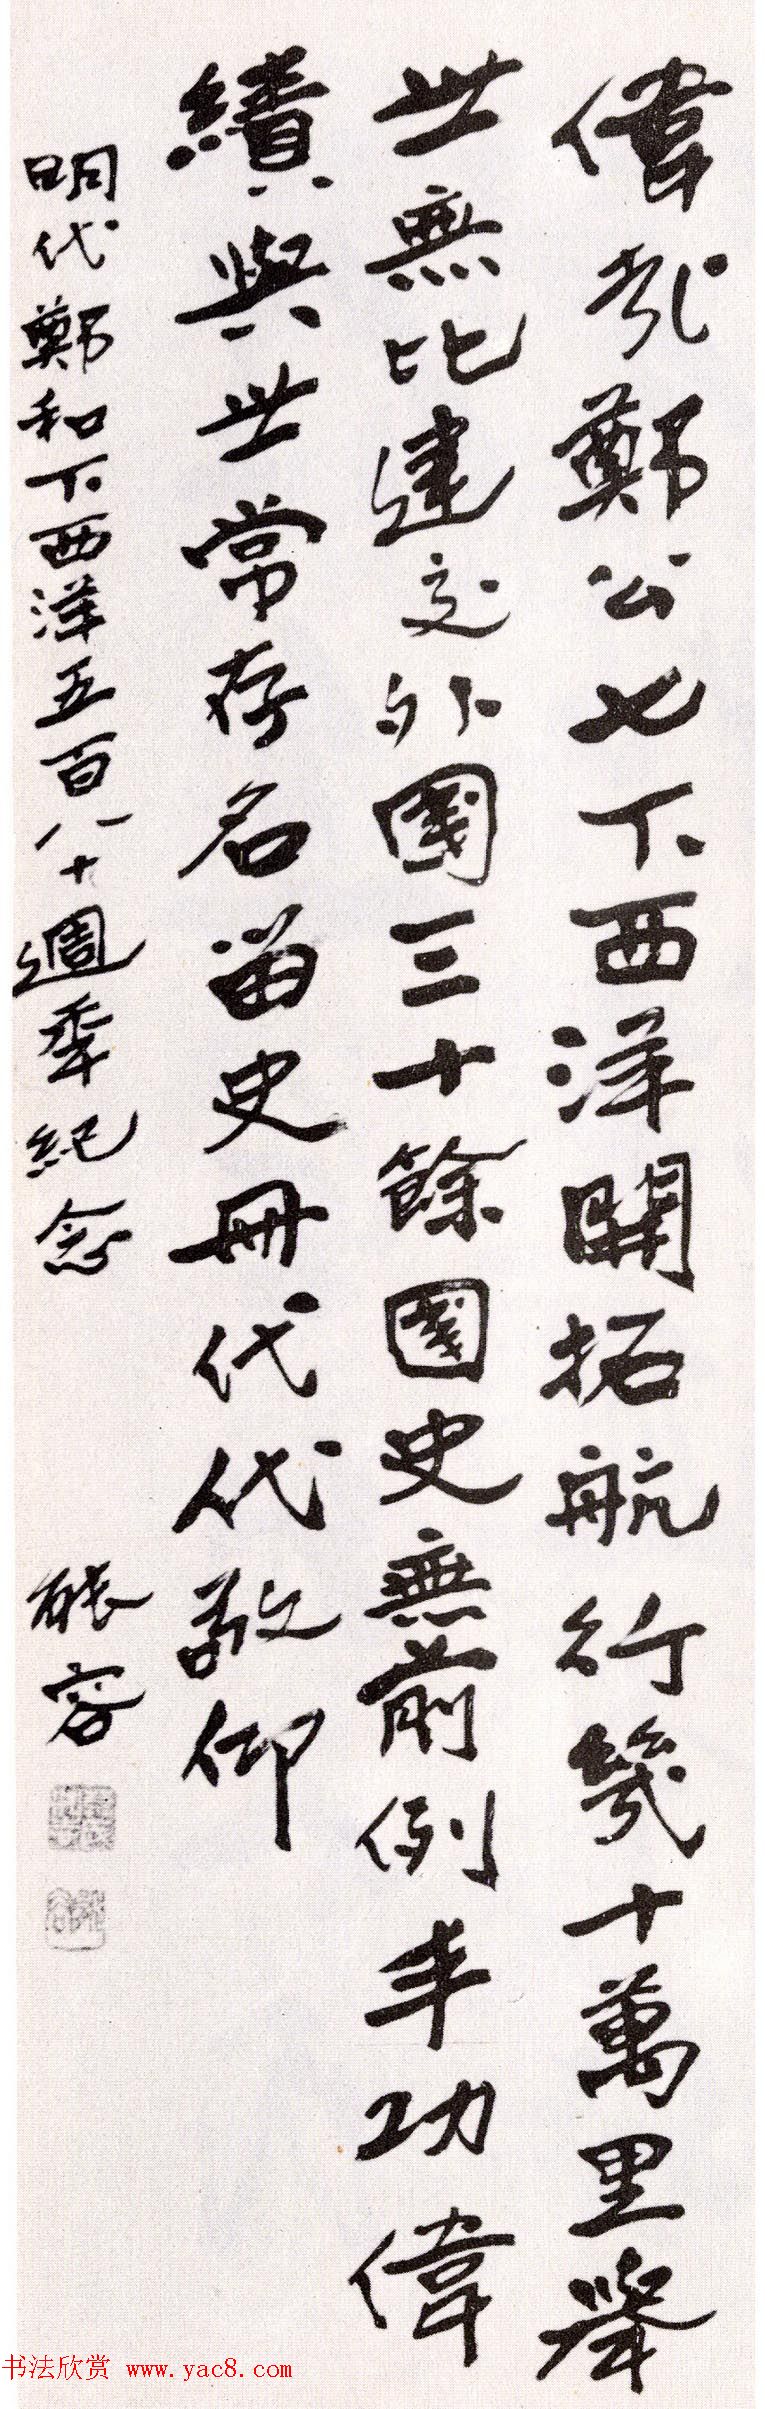 偉哉鄭公七下西洋開拓航行幾十萬里舉
世無比建交外國三十餘國史無前例丰功偉
績與世常存名留史冊代代敬仰
明代鄭和下西洋五百八十週年紀念
容
书法欣赏 www.yac8.com